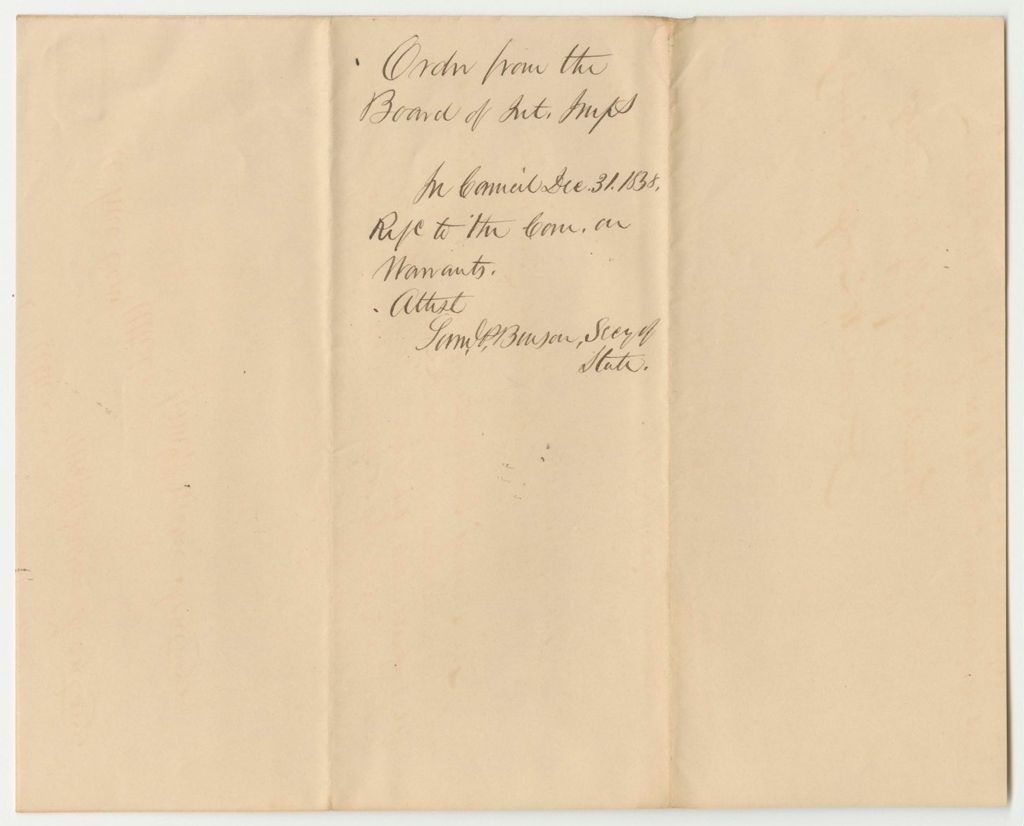 Order from the
Board of Int. Imps
In Council Dec. 31. 1838.
Refd to the Com. on
Warrants.
Attest
Saml. P. Benson, Secy of
State.